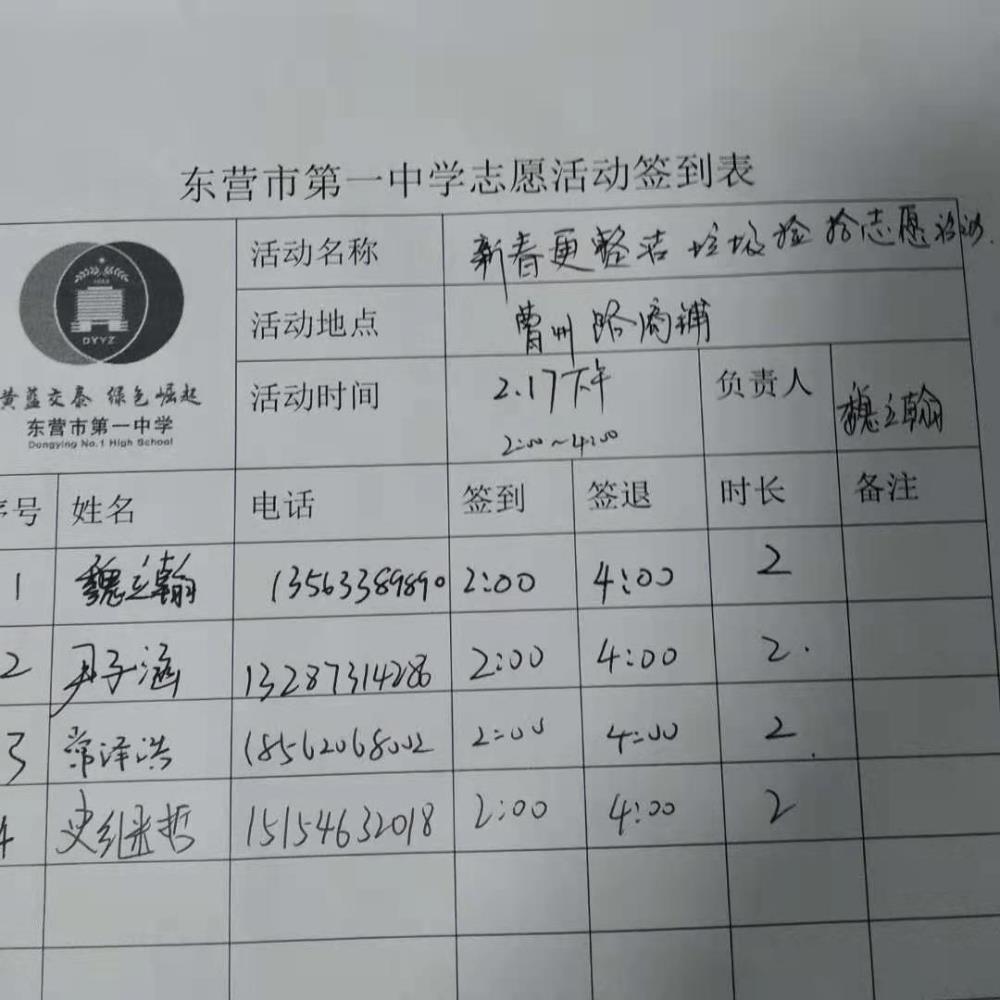 东营市第一中学志愿活动签到表
活动名称 新春更整洁 垃圾捡拾志愿活动.
活动地点 曹州路商铺
DYYZ
黄蓝交泰 绿色崛起
东营市第一中学
Dongying No.1 High School
活动时间 2.17下午 2:00~4:00 负责人 魏立翰
序号 姓名 电话 签到 签退 时长 备注
1 魏立翰 13563389890 2:00 4:00 2
2 尹子涵 13287314286 2:00 4:00 2.
3 常泽浩 18562068002 2:00 4:00 2.
4 史继哲 15154632018 2:00 4:00 2